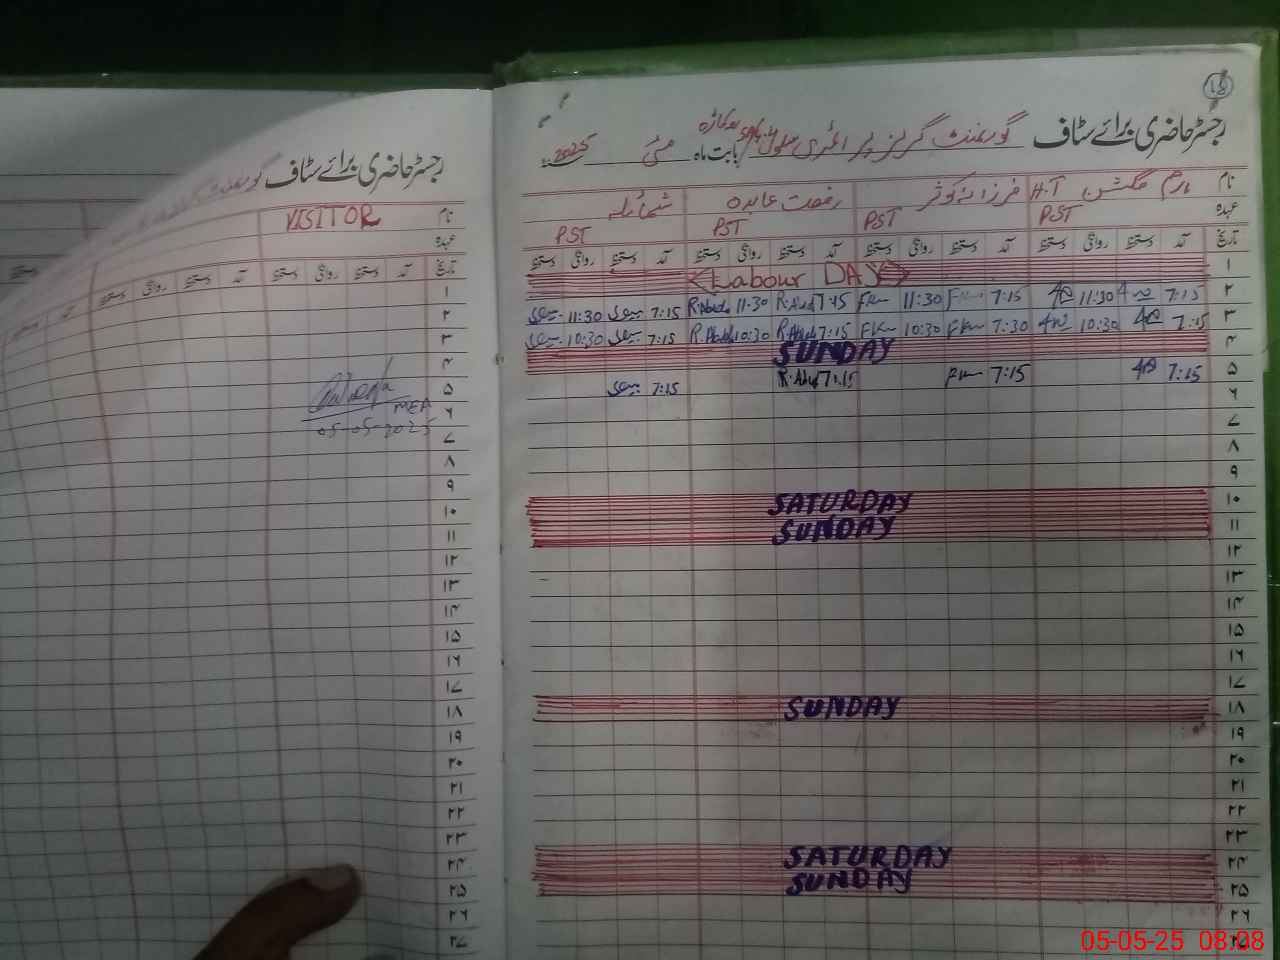 رجسٹر حاضری برائے سٹاف گورنمنٹ گرلز پرائمری سکول بابت ماہ مئی 2025
نام ارم گلشن H.T فرزانہ کوثر رفعت عابدہ شمائلہ
عہدہ PST PST PST PST
تاریخ آمد دستخط روانگی دستخط آمد دستخط روانگی دستخط آمد دستخط روانگی دستخط آمد دستخط روانگی دستخط
۱ Labour DAY
۲ 7:15 11:30 7:15 11:30 7:15 11:30 7:15 11:30
۳ 7:15 10:30 7:30 10:30 7:15 10:30 7:15 10:30
۴ SUNDAY
۵ 7:15 7:15 7:15 7:15
۶
۷
۸
۹
۱۰ SATURDAY
۱۱ SUNDAY
۱۲
۱۳
۱۴
۱۵
۱۶
۱۷
۱۸ SUNDAY
۱۹
۲۰
۲۱
۲۲
۲۳
۲۴ SATURDAY
۲۵ SUNDAY
۲۶
۲۷
رجسٹر حاضری برائے سٹاف
نام VISITOR
عہدہ
تاریخ آمد دستخط روانگی دستخط آمد دستخط روانگی دستخط
۱
۲
۳
۴
۵
۶ MEA
۷ 05-05-2025
۸
۹
۱۰
۱۱
۱۲
۱۳
۱۴
۱۵
۱۶
۱۷
۱۸
۱۹
۲۰
۲۱
۲۲
۲۳
۲۴
۲۵
۲۶
۲۷
05-05-25 08:08